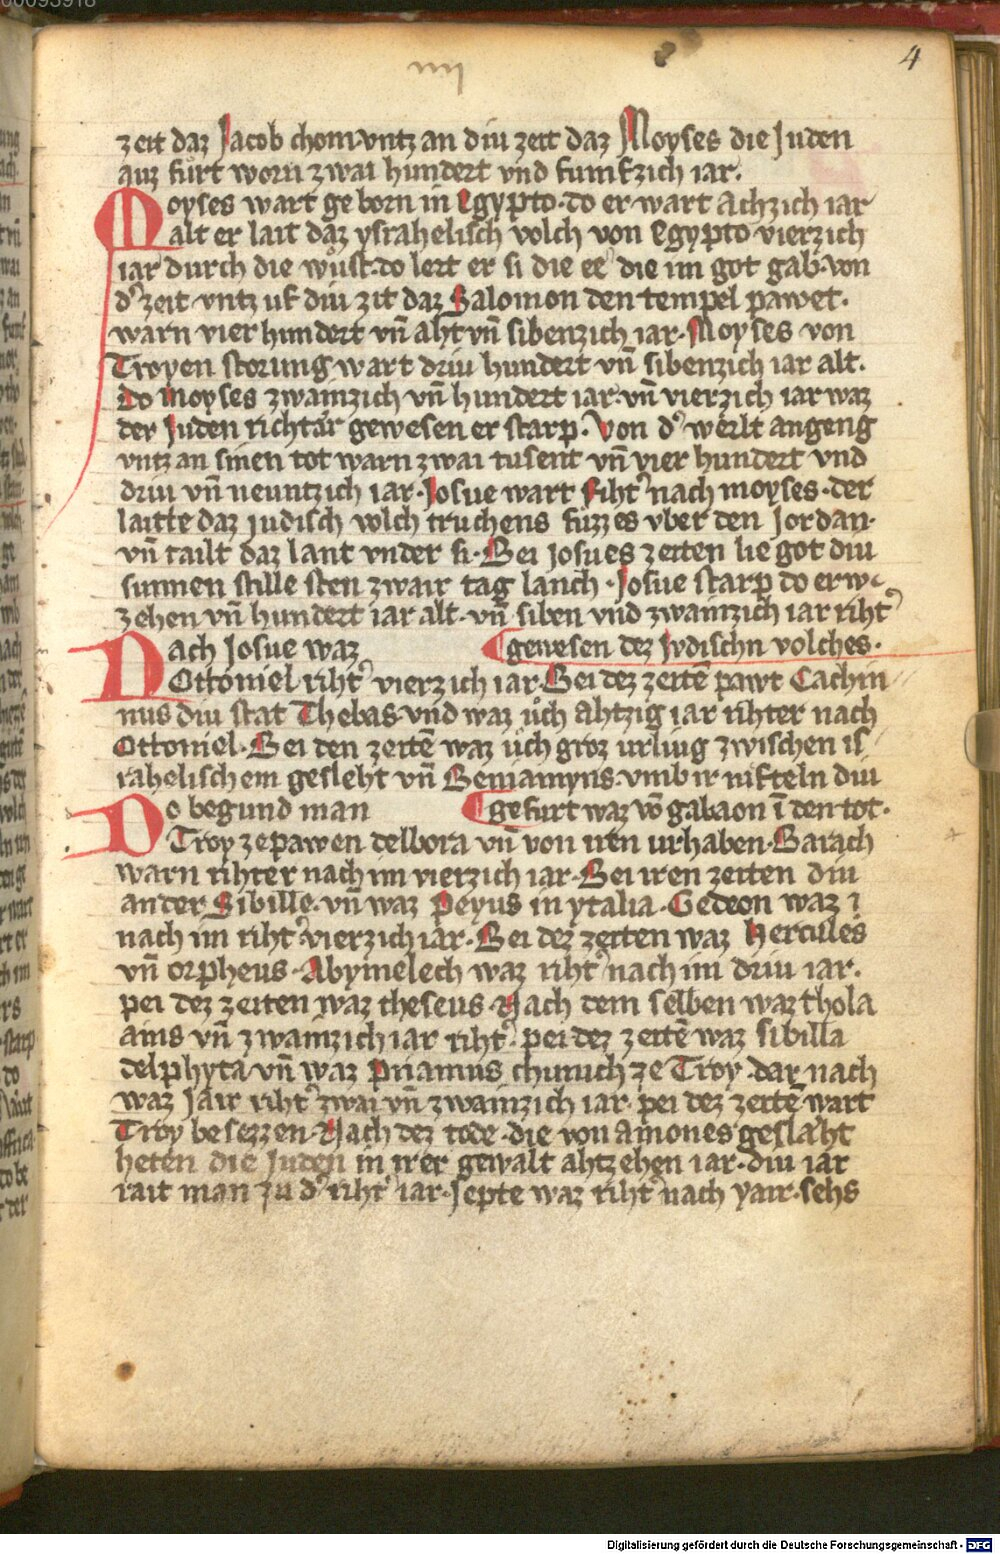 00093918
iiij
4
zeit daz Jacob chom vntz an diu zeit daz Moyses die Juden
auz fuͤrt worn zwai hundert vnd funfzich iar.
Moyses wart geborn in Egypto. do er wart Achzich iar
alt er lait daz ysrahelisch volch von Egypto vierzich
iar durch die wuͤst. do lert er si die ee die im got gab. von
d' zeit vntz uf diu zit daz Salomon den tempel pawet.
warn vier hundert vn̄ aht vn̄ sibenzich iar. Moyses von
Troyen storung wart driu hundert vn̄ sibenzich iar alt.
Do Moyses zwainzich vn̄ hundert iar vn̄ vierzich iar waz
der Juden richtaͤr gewesen er starp. Von d' werlt angeng
vntz an sinen tot warn zwai tusent vn̄ vier hundert vnd
driu vn̄ neuntzich iar. Josue wart riht' nach moyses. der
laitte daz judisch volch truchens fuzzes vber den Jordan.
vn̄ tailt daz lant vnder si. Bei josues zeiten lie got diu
sunnen stille sten zwair tag lanch. Josue starp do er w
zehen vn̄ hundert iar alt. vn̄ siben vnd zwainzich iar riht'
Nach Josue waz
gewesen dez Jvdischn volches.
Ottoniel riht' vierzich iar. Bei dez zeitē pawt Cachin
nus diu stat Thebas. vnd waz uͤch ahtzig iar rihter nach
Ottoniel. Bei den zeitē waz uͤch groz urliug zwischen is
rahelischem gesleht vn̄ Beniamyns. vmb ir nifteln diu
Do begund man
gefurt waz vō gabaon ī den tot.
Troy ze pawen delbora vn̄ von iren urhaben. Barach
warn rihter nach im vierzich iar. Bei iren zeiten diu
ander Sibille. vn̄ waz Peyus in ytalia. Gedeon waz
nach im riht' vierzich iar. Bei dez zeiten waz Hercules
vn̄ orpheus. Abymelech waz riht' nach im driu iar.
pei dez zeiten waz theseus. Nach dem selben waz thola
ains vn̄ zwainzich iar riht'. pei dez zeitē waz sibilla
delphyta vn̄ waz Priamus chunich ze Troy. dar nach
waz Jair riht' zwai vn̄ zwainzich iar. pei dez zeitē wart
Troy besezzen. Nach dez tode. die von amones geslaͤht
heten die Juden in irer gewalt ahtzehen iar. diu iar
rait man zu d' riht' iar. septe waz riht' nach yair. sehs
Digitalisierung gefördert durch die Deutsche Forschungsgemeinschaft - DFG